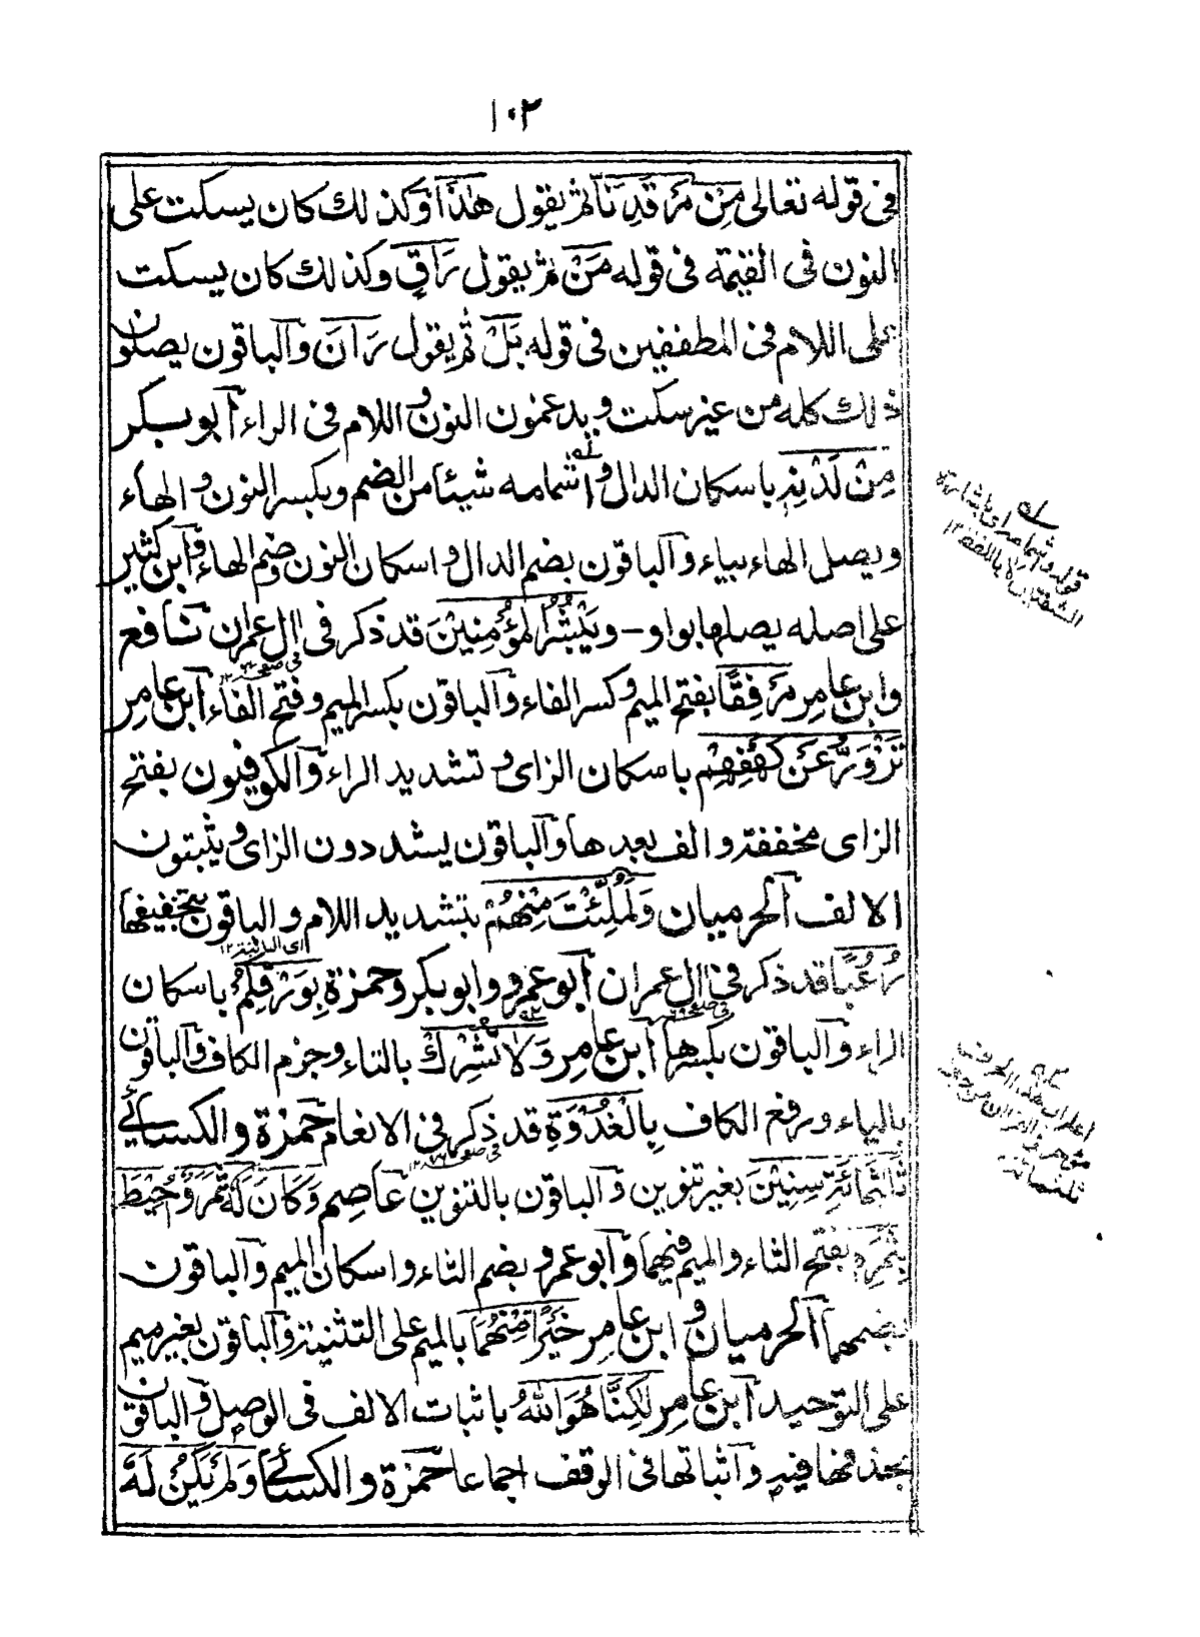 ١٠٢
فى قوله تعالى مِنْ مَرْقَدِنَا ثم يقول هٰذَا وكذلك كان يسكت على
النون فى القيٰمة فى قوله مَنْ ثم يقول رَاقٍ وكذلك كان يسكت
على اللام فى المطففين فى قوله بَلْ ثم يقول رَانَ والباقون يصلون
ذلك كله من غير سكت ويدغمون النون و اللام فى الراء ابو بكر
مِنْ لَدْنِهِ باسكان الدال و اشمامه شيئا من الضم وبكسر النون و الهاء
ويصل الهاء بياء و الباقون بضم الدال و اسكان النون وضم الهاء و ابن كثير
على اصله يصلها بواو – وَيُبَشِّرُ الْمُؤْمِنِيْنَ قد ذكر فى اٰل عمران نافع
وابن عامر مَرْفِقًا بفتح الميم وكسر الفاء و الباقون بكسر الميم وفتح الفاء ابن عامر
تَزْوَرُّ عَنْ كَهْفِهِمْ باسكان الزاى و تشديد الراء و الكوفيون بفتح
الزاى مخففة و الف بعدها و الباقون يشددون الزاى و يثبتون
الالف الحرميان وَلَمُلِّئْتَ مِنْهُمْ بتشديد اللام و الباقون بتخفيفها
رُعْبًا قد ذكر فى اٰل عمران ابو عمرو و ابو بكر وحمزة بِوَرْقِكُمْ باسكان
الراء و الباقون بكسرها ابن عامر وَلَا تُشْرِكْ بالتاء وجزم الكاف و الباقون
بالياء ورفع الكاف بِالْغُدْوَةِ قد ذكر فى الانعام حمزة و الكسائى
ثَلٰثَمِائَةِ سِنِيْنَ بغير تنوين و الباقون بالتنوين عاصم وَكَانَ لَهٗ ثَمَرٌ وَاُحِيْطَ
بِثَمَرِهٖ بفتح الثاء و الميم فيهما و ابو عمرو بضم الثاء و اسكان الميم و الباقون
بضمهما الحرميان و ابن عامر خَيْرًا مِّنْهُمَا بالميم على التثنية و الباقون بغير ميم
على التوحيد ابن عامر لٰكِنَّا هُوَ اللّٰهُ باثبات الالف فى الوصل و الباقون
بحذفها فيه و اثباتها فى الوقف اجماعا حمزة و الكسائى وَلَمْ يَكُنْ لَهٗ